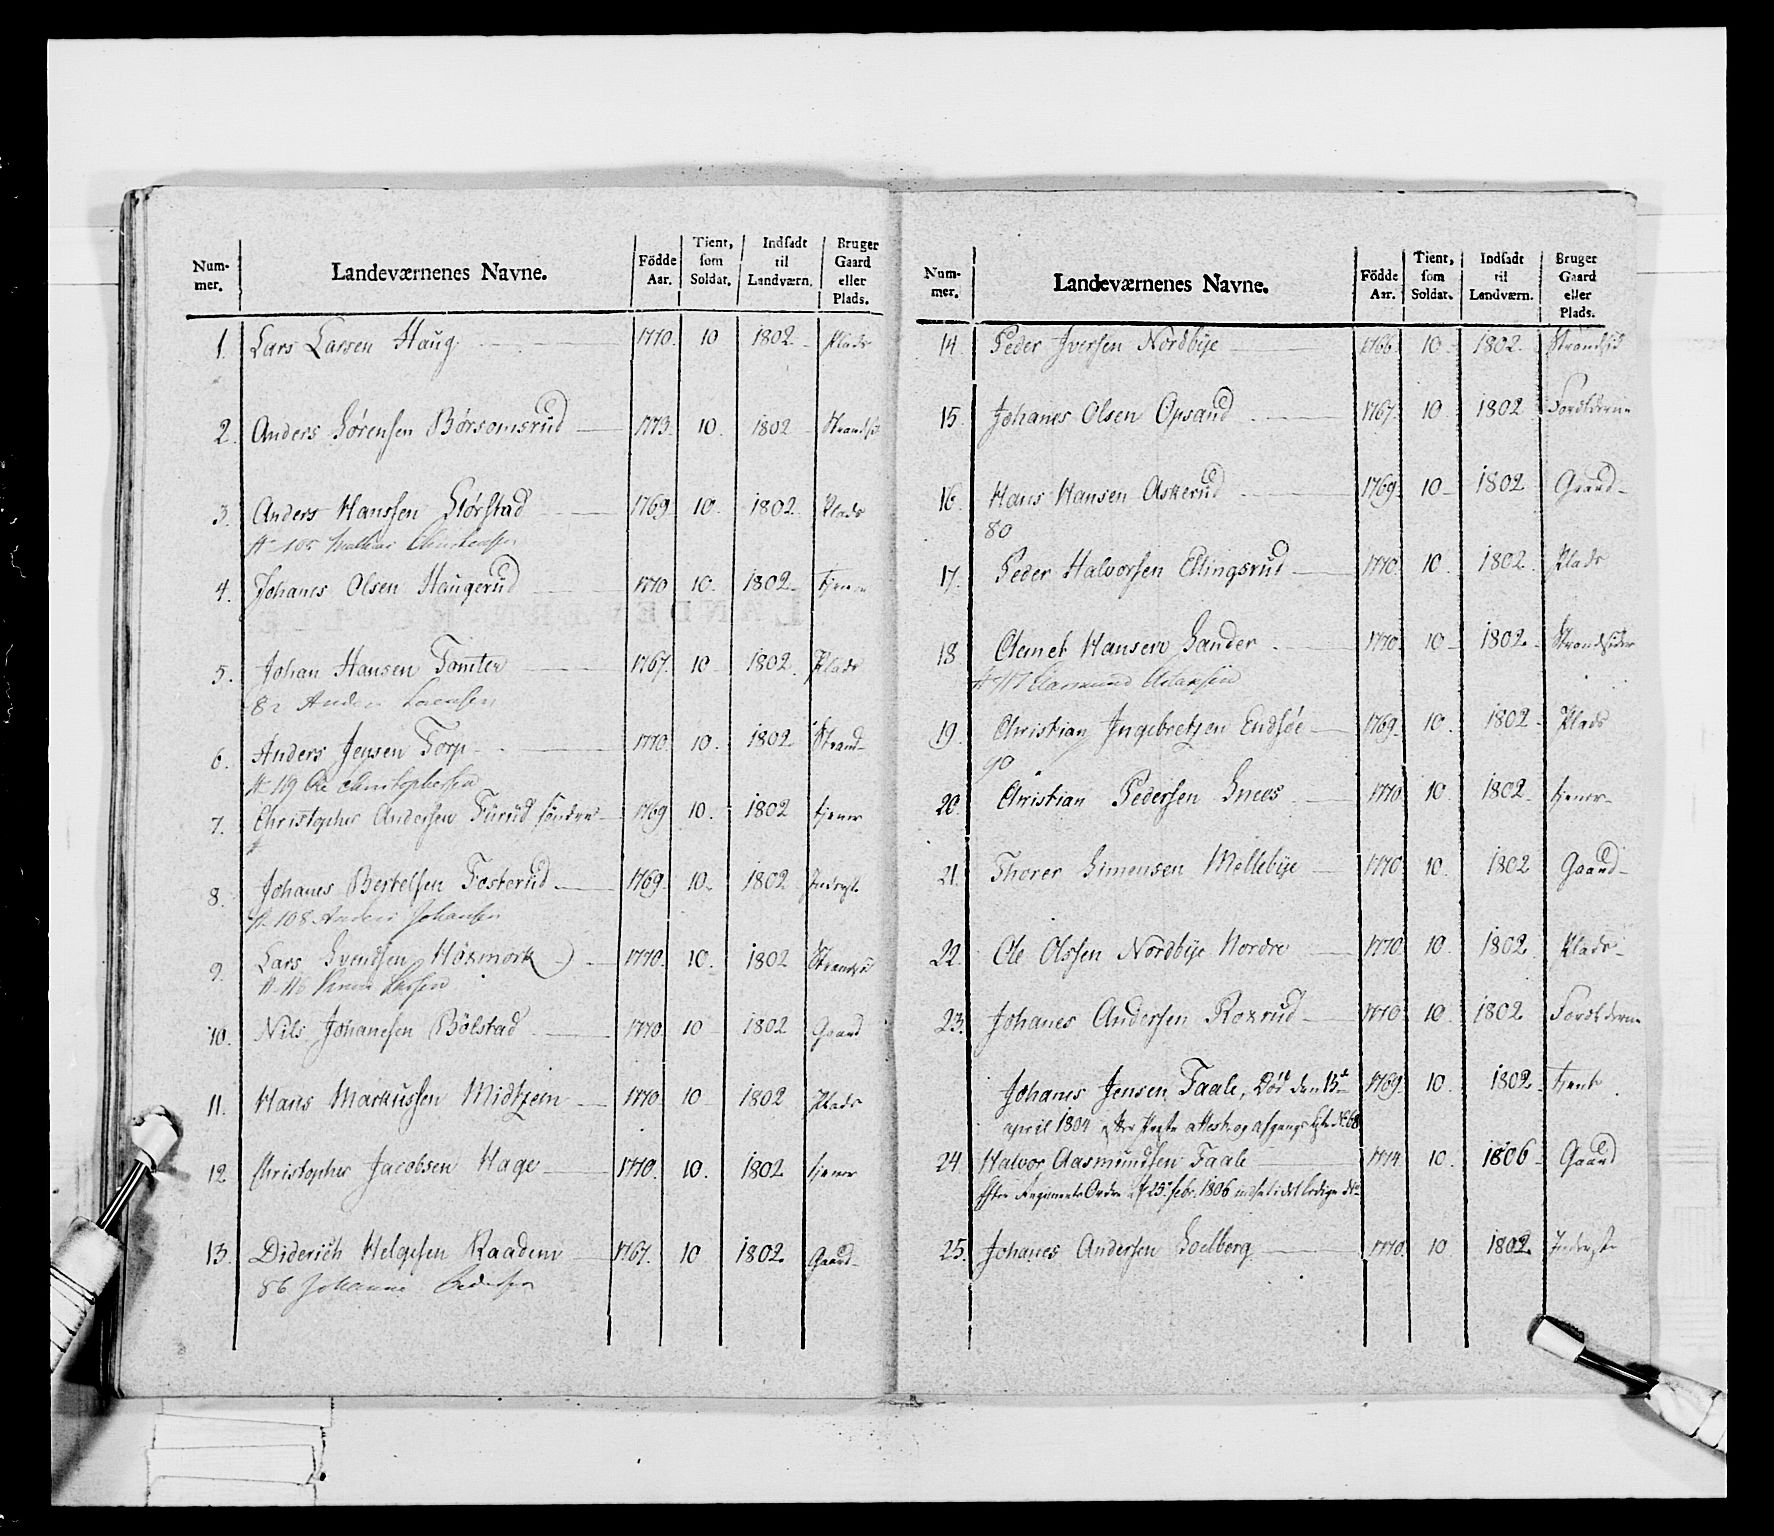 Num-mer. Landeværnenes Navne. Födde Aar. Tient, som Soldat. Indsadt til Landværn. Bruger Gaard eller Plads.
1. Lars Larsen Haug 1770. 10 1802 Plads
2. Anders Sørensen Børsomsrud 1773. 10. 1802 Strandsid
3. Anders Hanssen Glørstad 1769 10. 1802. Plads
105
4. Johanes Olsen Haugerud 1770 10. 1802. tjener
5. Johan Hansen Tomter 1767. 10 1802. Plads
82 Anders Larensen
6. Anders Jensen Torp 1770. 10. 1802. Strand-
119 Ole Christophersen
7. Christopher Andersen Furud søndre 1769 10. 1802 tjener
8. Johanes Bertelsen Fosterud 1769. 10. 1802 Inderste
108 Anders Johansen
9. Lars Svendsen Haxmork 1770. 10. 1802 Strandsid
10. Nils Johanesen Bölstad 1770. 10 1802 Gaard
11. Hans Markussen Midtzem 1770 10 1802 Plads
12 Christopher Jacobsen Hage 1770. 10. 1802 tjener
13. Diderich Helgesen Raadem 1767. 10 1802. Gaard
86 Johannes Pedersen
Num-mer. Landeværnenes Navne. Födde Aar. Tient, som Soldat. Indsadt til Landværn. Bruger Gaard eller Plads.
14 Peder Iversen Nordbye 1766. 10 1802. Strandsid
15. Johanes Olsen Opsand 1767. 10 1802 Forældrene
16. Hans Hansen Askerud 1769. 10 1802 Gaard
80
17. Peder Halvorsen Ellingsrud 1770. 10. 1802. Plads
18 Clemet Hansen Sander 1770. 10 1802. Strandsider
117 Aasmund
19. Christian Ingebretsen Endsöe 1769. 10. 1802 Plads
90
20. Christian Pedersen Snees 1770 10 1802 tjener
21. Thorer Simensen Mellebye 1770. 10. 1802 Gaard
22. Ole Olssen Nordbye Nordre 1770 10 1802. Plads
23. Johanes Andersen Roxrud 1770 10 1802 Forældrene
Johanes Jensen Faale, Död den 15de 1769. 10. 1802. tjent
april 1804 efter attest og afgangs Liste No 68
24 Halvor Aasmundsen Faale 1774 10. 1806 Gaard
Efter Regiments Ordre af 25 febr. 1806 indsat i det ledige No
25. Johanes Andersen Soelberg 1770. 10. 1802. Inderste